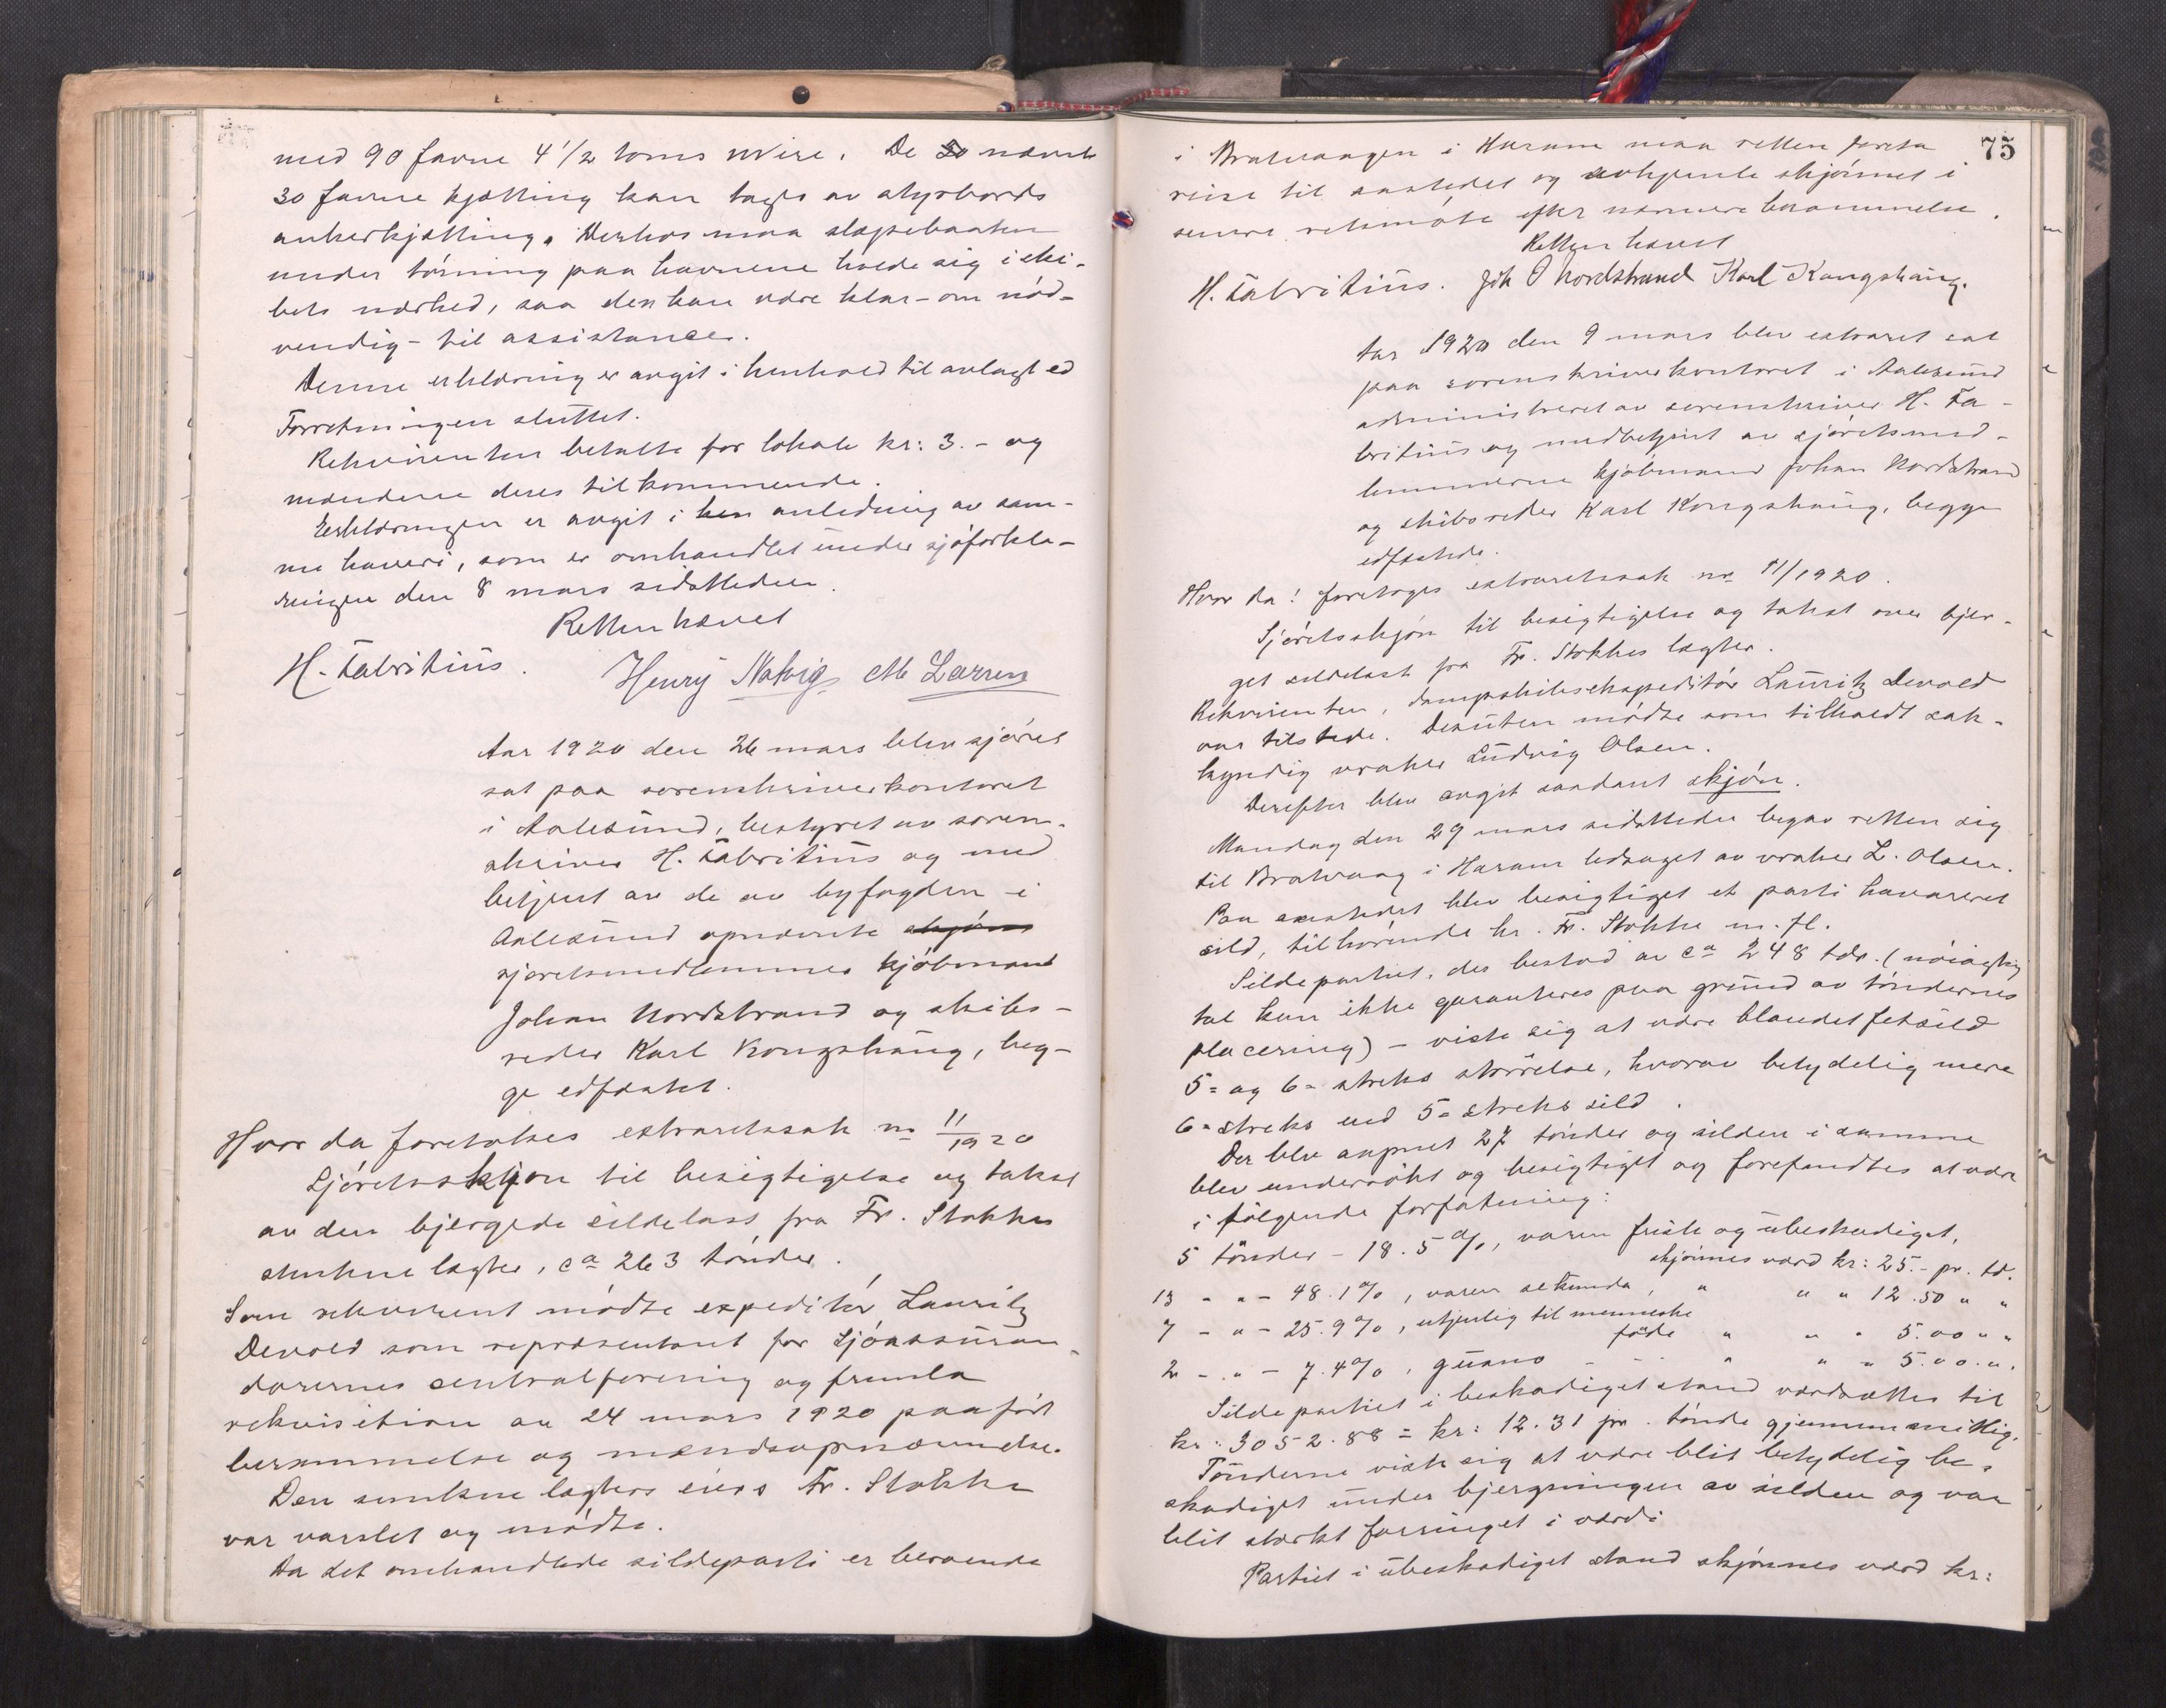 med 90 favne 4 1/2 toms wire. De 30 nævnte
30 favne kjætting kan tages av styrbords
ankerkjætting. Derhos maa slæpebaaten
under törning paa havnene holde sig i ski-
bets nærhed, saa den kan være klar - om nöd-
vendig - til assistance.
Denne erklæring er avgit i henhold til avlagt ed
Forretningen sluttet.
Rekvirenten betalte for lokale kr: 3.- og
mændene deres tilkommende.
Erklæringen er avgit i anledning av sam-
me haveri, som er omhandlet under sjöforkla-
ringen den 8 mars sidstleden.
Retten hævet
H. Fabritius. Henry Natvig M Larsen
Aar 1920 den 26 mars blev sjöret
sat paa sorenskriverkontoret
i Aalesund, bestyret av soren-
skriver H. Fabritius og med
betjent av de av byfogden i
Aalesund opnævnte skjöns
sjöretsmedlemmer kjöbmand
Johan Nordstrand og skibs-
reder Karl Kongshaug, beg-
ge edfæstet.
Hvor da foretokes extraretssak no 11/1920
Sjöretsskjön til besigtigelse og takst
av den bjergede sildelast fra Fr. Stokkes
sunkne lægter, ca 263 tönder.
Som rekvirent mödte expeditör Lauritz
Devold som repræsentant for Sjöassuran-
dörernes centralforening og fremla
rekvisition av 24 mars 1920 paaført
berammelse og mændsopnævnelse.
Den sunkne lægters eier Fr. Stokke
var varslet og mödte.
Da det omhandlede sildeparti er beroende
75
i Bratvaagen i Haram maa retten foreta
reise til aastedet og avhjemle skjönnet i
senere retsmöte efter nærmere berammelse.
Retten hævet
H. Fabritius. Joh O Nordstrand Karl Kongshaug.
Aar 1920 den 9 mars blev extraret sat
paa sorenskriverkontoret i Aalesund
administreret av sorenskriver H. Fa-
britius og medbetjent av sjöretsmed-
lemmerne kjöbmand Johan Nordstrand
og skibsreder Karl Kongshaug, begge
edfæstede.
Hvor da! foretoges extraretssak no 11/1920.
Sjöretsskjön til besigtigelse og takst over bjer-
get sildelast fra Fr. Stokkes lægter.
Rekvirenten, dampskibsekspeditör Lauritz Devold
var tilstede. Desuten mödte som tilkaldt sak-
kyndig vraker Ludvig Olsen.
Derefter blev avgit saadant skjön.
Mandag den 29 mars sidstleden begav retten sig
til Bratvaag i Haram ledsaget av vraker L. Olsen.
Paa aastedet blev besigtiget et parti havareret
sild, tilhörende hr. Fr. Stokke m. fl.
Sildepartiet, der bestod av ca 248 tdr. (nöiagtig
tal kan ikke garanteres paa grund av töndernes
placering) - viste sig at være blandet fetsild
5= og 6= streks störrelse, hvorav betydelig mere
6= streks end 5= streks sild.
Der blev aapnet 27 tönder og silden i samme
blev undersökt og besigtiget og forefandtes at være
i fölgende forfatning:
5 tönder - 18.5 %, varen frisk og ubeskadiget,
skjönnes værd kr: 25.- pr. td.
13 - " - 48.1 %, varen sekunda, " " " 12.50 " "
7 - " - 25.9 %, utjenlig til menneske
föde " " " 5.00 " "
2 - " - 7.4 %, guano - - " " " 5.00 " "
Sildepartiet i beskadiget stand værdsættes til
kr: 3052.88 = kr: 12.31 pr. tönde gjennemsnitlig.
Tönderne viste sig at være blit betydelig be-
skadiget under bjergningen av silden og var
blit sterkt forringet i værdi
Partiet i ubeskadiget stand skjönnes værd kr: